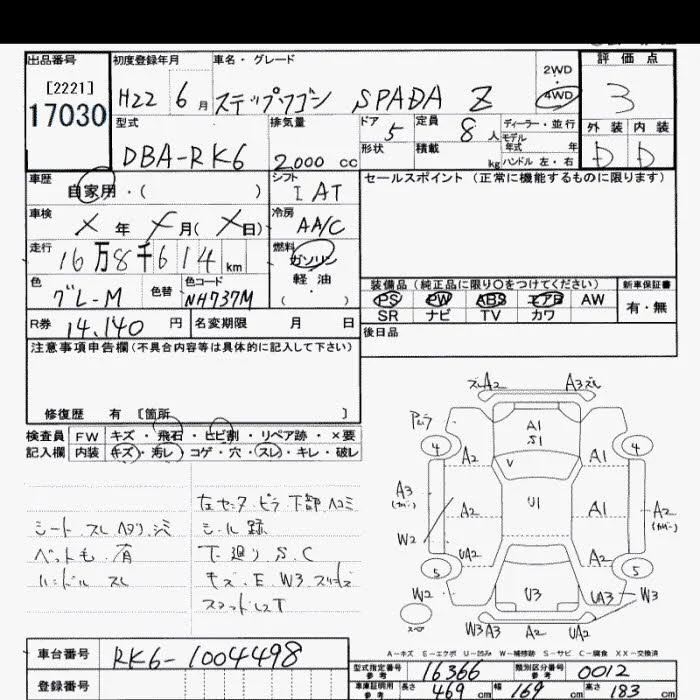 出品番号 初度登録年月 車名・グレード 2WD・4WD 評価点
[2221] 17030 H22 6月 ステップワゴン SPADA Z 3
型式 排気量 ドア 定員 ディーラー・並行 外装 内装
DBA-RK6 2000cc 5 8人 モデル年式 年 D D
形状 積載 kg ハンドル 左・右
車歴 シフト セールスポイント (正常に機能するものに限ります)
自家用・( ) I AT
車検 冷房
X 年 X 月( X 日) AA/C
走行 燃料
16万8千614km ガソリン
軽油
( )
色 色替 色コード
グレ-M NH737M
装備品 (純正品に限り○をつけてください) 新車保証書
PS PW ABS エアB AW 有・無
SR ナビ TV カワ
R券 14,140円 名変期限 月 日
後日品
注意事項申告欄 (不具合内容等は具体的に記入して下さい)
修復歴 有 [箇所 ]
検査員 FW キズ・飛石・ヒビ割・リペア跡・×要
記入欄 内装 キズ・汚レ・コゲ・穴・スレ・キレ・破レ
シート スレ ヘタリ シミ
ペットも 有
ハンドル スレ
左センターピラー下部 ヘコミ
シール跡
下廻り S.C
キズ・E W3
A2 A3
4 A1 S1 4
A2 A1
A3 V A2
A2 U1 A1
W2 UA2 A2
5 5
W2 U3 UA3 W3
W3A3 A2 UA2
スペア
A-キズ E-エクボ U-凹み W-補修跡 S-サビ C-腐食 XX-交換済
車台番号 RK6-1004498
登録番号
型式指定番号 参考 16366 類別区分番号 参考 0012
車庫証明用 参考 長さ 469cm 幅 169cm 高さ 183cm